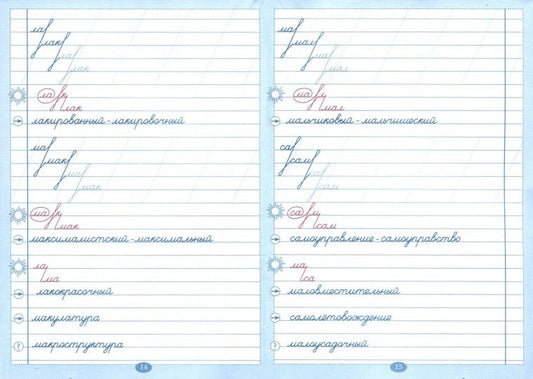 ла
лак
ла
лак
ла к
лак
лакированный - лакировочный
ма
мак
ма
мак
ма к
мак
максималистский - максимальный
ла
ма
лакокрасочный
макулатура
макроструктура
14
ма
мал
ма
мал
ма л
мал
мальчиковый - мальчишеский
са
сам
са
сам
са м
сам
самоуправление - самоуправство
ма
са
маловместительный
самолетовождение
малоусадочный
15